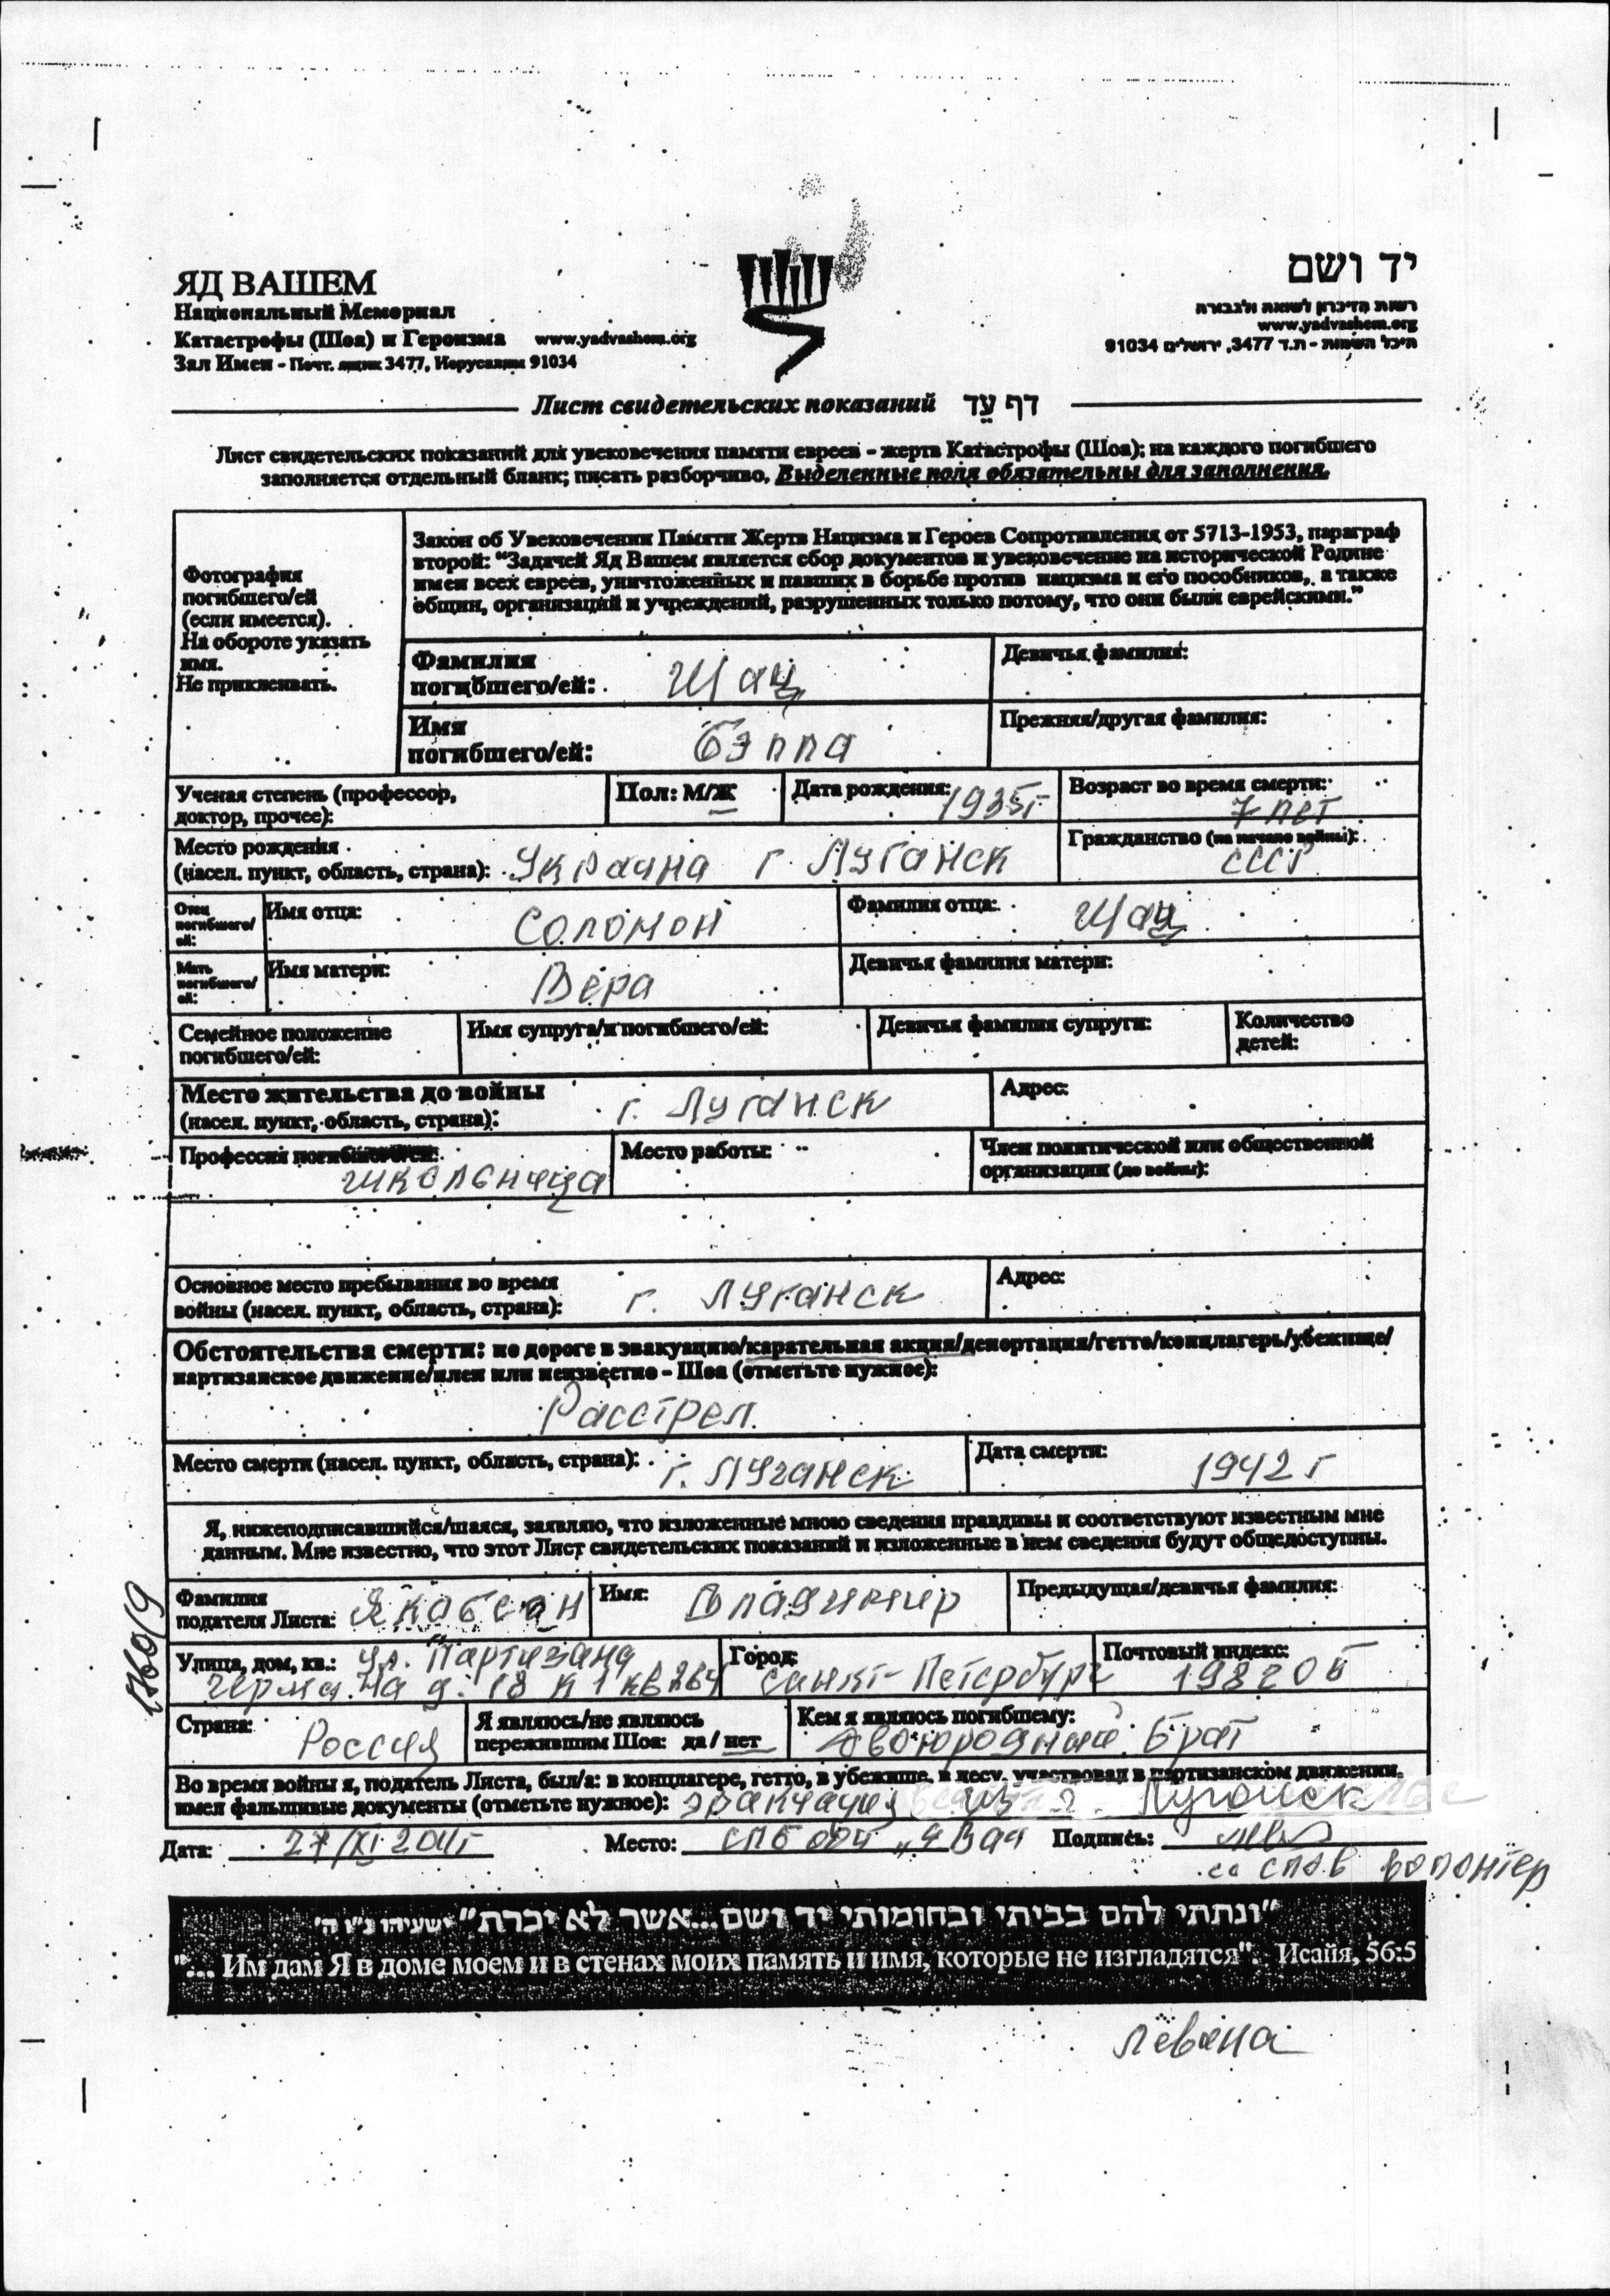 ЯД ВАШЕМ
Национальный Мемориал
Катастрофы (Шоа) и Героизма www.yadvashem.org
Зал Имен - Почт. ящик 3477, Иерусалим 91034
יד ושם
רשות הזיכרון לשואה ולגבורה
www.yadvashem.org
היכל השמות - ת.ד 3477, ירושלים 91034
Лист свидетельских показаний דף עֵד
Лист свидетельских показаний для увековечения памяти евреев - жертв Катастрофы (Шоа); на каждого погибшего
заполняется отдельный бланк; писать разборчиво. Выделенные поля обязательны для заполнения.
Фотография
погибшего/ей
(если имеется).
На обороте указать
имя.
Не приклеивать.
Закон об Увековечении Памяти Жертв Нацизма и Героев Сопротивления от 5713-1953, параграф
второй: “Задачей Яд Вашем является сбор документов и увековечение на исторической Родине
имен всех евреев, уничтоженных и павших в борьбе против нацизма и его пособников, а также
общин, организаций и учреждений, разрушенных только потому, что они были еврейскими.”
Фамилия
погибшего/ей: Шац
Девичья фамилия:
Имя
погибшего/ей: Бэлла
Прежняя/другая фамилия:
Ученая степень (профессор,
доктор, прочее):
Пол: М/Ж
Дата рождения: 1935г
Возраст во время смерти:
7 лет
Место рождения
(насел. пункт, область, страна): Украина г. Луганск
Гражданство (на начало войны):
СССР
Отец
погибшего/
ей:
Имя отца: Соломон
Фамилия отца: Шац
Мать
погибшего/
ей:
Имя матери: Вера
Девичья фамилия матери:
Семейное положение
погибшего/ей:
Имя супруга/и погибшего/ей:
Девичья фамилия супруги:
Количество
детей:
Место жительства до войны
(насел. пункт, область, страна): г. Луганск
Адрес:
Профессия погибшего/ей:
школьница
Место работы:
Член политической или общественной
организации (до войны):
Основное место пребывания во время
войны (насел. пункт, область, страна): г. Луганск
Адрес:
Обстоятельства смерти: по дороге в эвакуацию/карательная акция/депортация/гетто/концлагерь/убежище/
партизанское движение/плен или неизвестно - Шоа (отметьте нужное):
Расстрел.
Место смерти (насел. пункт, область, страна): г. Луганск
Дата смерти: 1942 г
Я, нижеподписавшийся/шаяся, заявляю, что изложенные мною сведения правдивы и соответствуют известным мне
данным. Мне известно, что этот Лист свидетельских показаний и изложенные в нем сведения будут общедоступны.
Фамилия
подателя Листа: Якобсон
Имя: Владимир
Предыдущая/девичья фамилия:
Улица, дом, кв.: ул. Партизана
Германа д. 18 к 1 кв 264
Город:
Санкт-Петербург
Почтовый индекс:
198206
Страна: Россия
Я являюсь/не являюсь
пережившим Шоа: да / нет
Кем я являюсь погибшему:
двоюродный Брат
Во время войны я, податель Листа, был/а: в концлагере, гетто, в убежище, в лесу, участвовал в партизанском движении,
имел фальшивые документы (отметьте нужное): эвакуация из г. Луганск
Дата: 27/XI 2011г Место: СПБ Подпись:
волонтер
"ונתתי להם בביתי ובחומותי יד ושם...אשר לא יכרת" ישעיהו נ"ו ה'
"... Им дам Я в доме моем и в стенах моих память и имя, которые не изгладятся". Исайя, 56:5
Левина